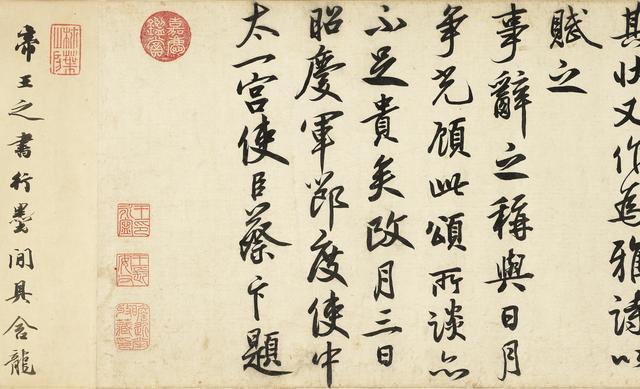 其狀又作為雅詩以
賦之
事辭之稱與日月
爭光顧此頌所談亦
不足貴矣政月三日
昭慶軍節度使中
太一宮使臣蔡卞題
嘉慶鑑賞
帝王之書行墨間具含龍